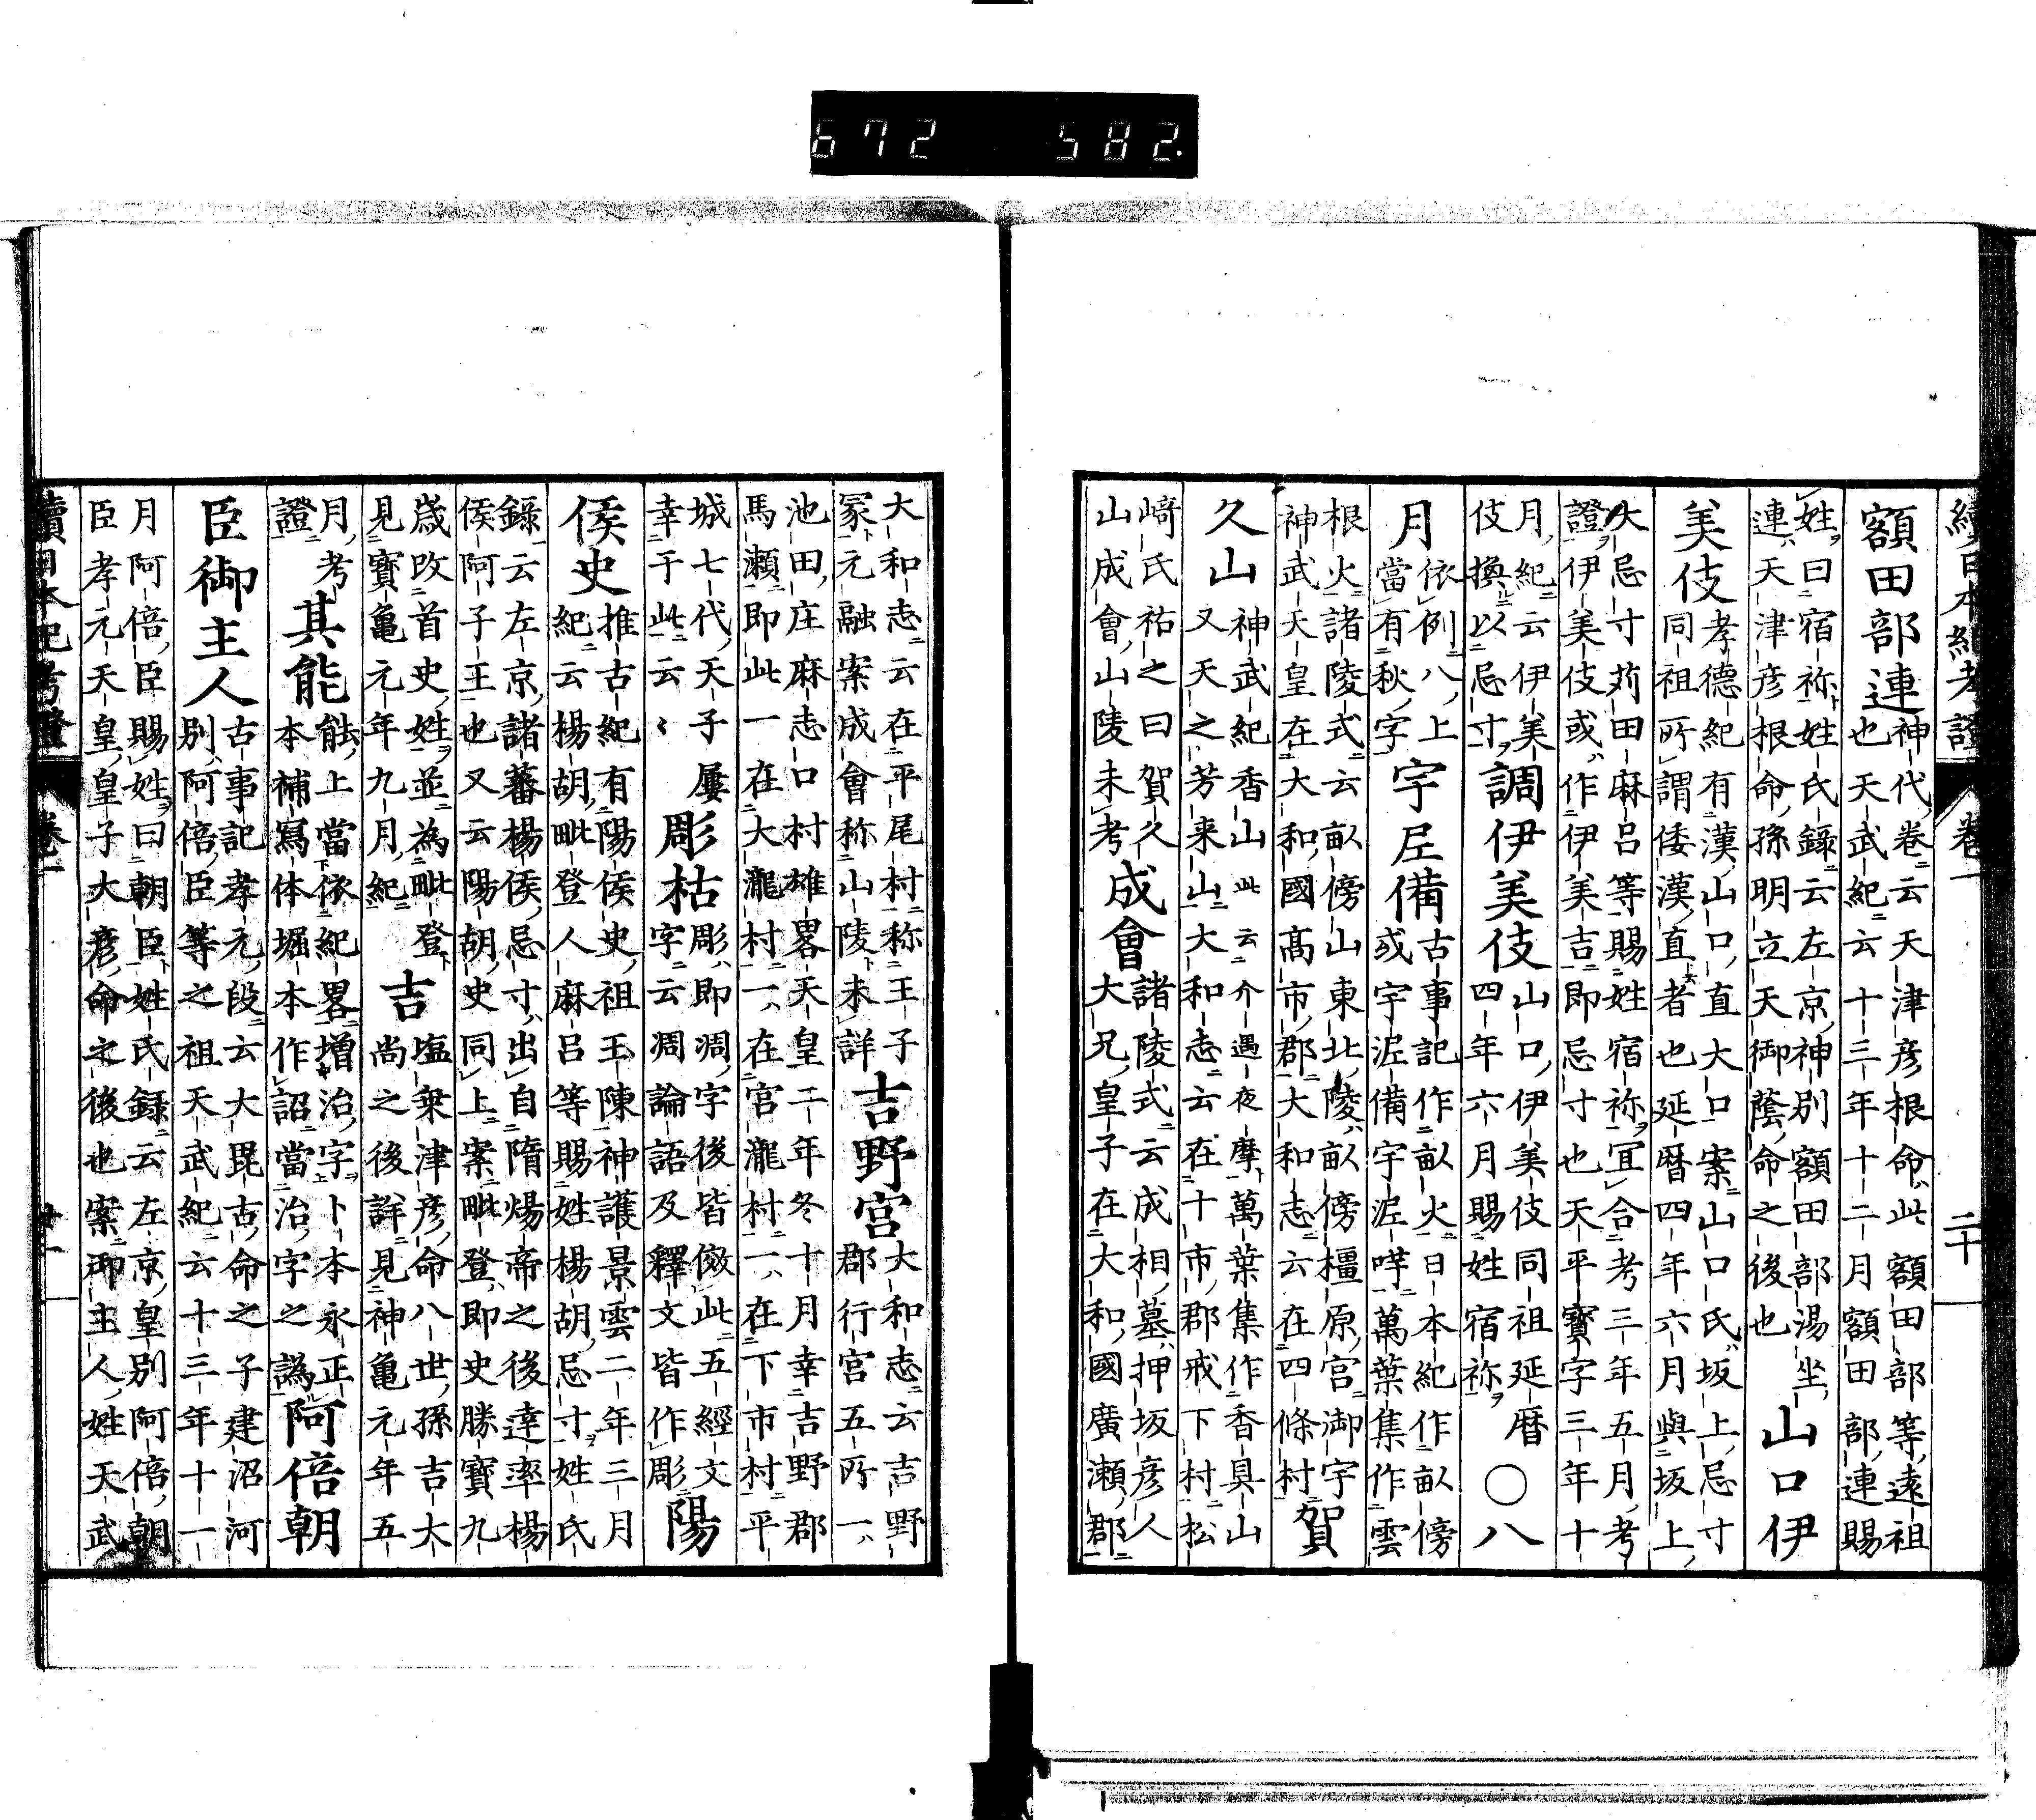 672 582.
續日本紀考證 卷一 二十
額田部連 神代卷云天津彦根命此額田部等遠祖
也天武紀云十三年十二月額田部連賜
姓曰宿祢姓氏錄云左京神別額田部湯坐
連天津彦根命孫明立天御蔭命之後也 山口伊
美伎 孝德紀有漢山口直大口案山口氏坂上忌寸
同祖所謂倭漢直者也延暦四年六月與坂上
大忌寸苅田麻呂等賜姓宿祢宜合考三年五月考
證伊美伎或作伊美吉即忌寸也天平寳字三年十
月紀云伊美
伎換以忌寸 調伊美伎 山口伊美伎同祖延暦
四年六月賜姓宿祢 ○八
月 依例八上
當有秋字 宇尼備 古事記作畝火日本紀作畝傍
或宇泥備宇泥咩萬葉集作雲
根火諸陵式云畝傍山東北陵畝傍橿原宮御宇
神武天皇在大和國高市郡大和志云在四條村 賀
久山 神武紀香山此云介遇夜摩萬葉集作香具山
又天之芳来山大和志云在十市郡戒下村松
﨑氏祐之曰賀久
山成會山陵未考 成會 諸陵式云成相墓押坂彦人
大兄皇子在大和國廣瀬郡
大和志云在平尾村称王子
冢元融案成會称山陵未詳 吉野宮 大和志云吉野
郡行宮五所一
池田庄麻志口村雄畧天皇二年冬十月幸吉野郡
馬瀬即此一在大瀧村一在宮瀧村一在下市村平
城七代天子屢
幸于此云〻 彫枯 彫即凋字後皆倣此五經文
字云凋論語及釋文皆作彫 陽
侯史 推古紀有陽侯史祖王陳神護景雲二年三月
紀云楊胡毗登人麻呂等賜姓楊胡忌寸姓氏
錄云左京諸蕃楊侯忌寸出自隋煬帝之後達率楊
侯阿子王也又云陽胡史同上案毗登即史勝寳九
歳改首史姓並為毗登
見寳亀元年九月紀 吉 塩乗津彦命八世孫吉大
尚之後詳見神亀元年五
月考
證 其能 能上當依紀畧增治字卜本永正
本補寫体堀本作詔當治字之譌 阿倍朝
臣御主人 古事記孝元段云大毘古命之子建沼河
別阿倍臣等之祖天武紀云十三年十一
月阿倍臣賜姓曰朝臣姓氏録云左京皇別阿倍朝
臣孝元天皇皇子大彦命之後也案御主人姓天武
續日本紀考證 卷一 廿一